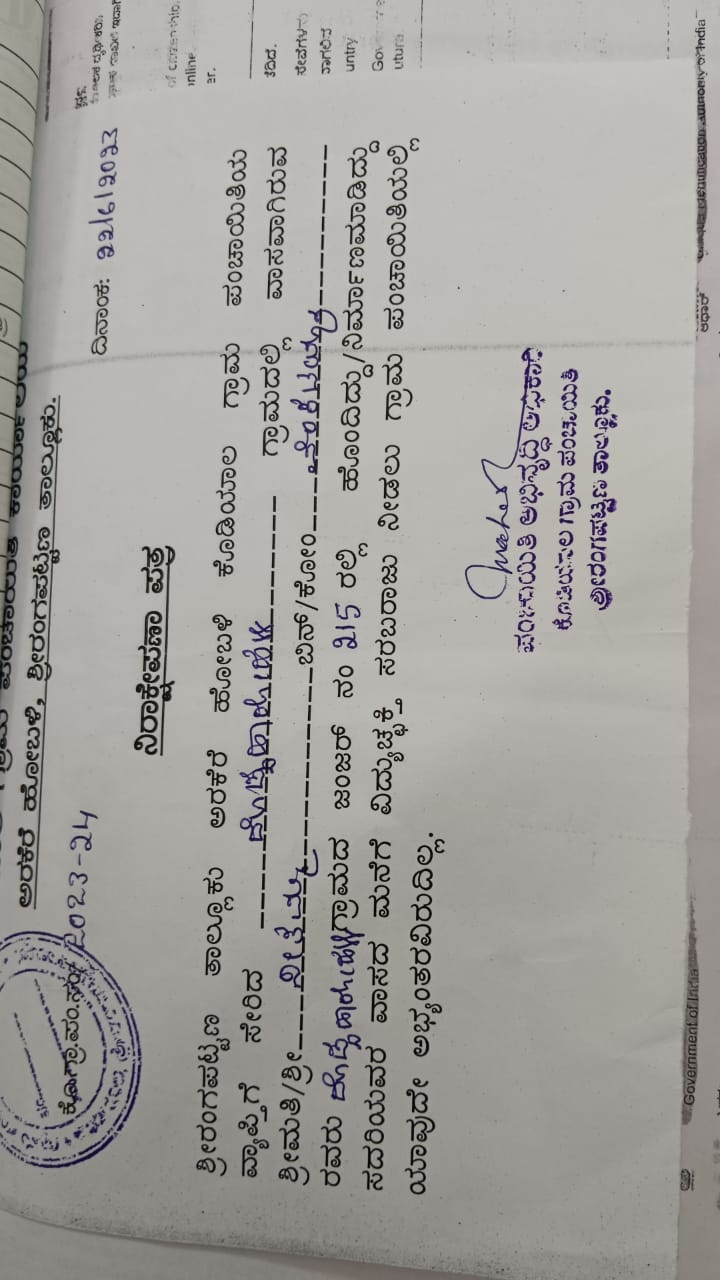 ಗ್ರಾಮ ಪಂಚಾಯಿತಿ ಕಾರ್ಯಾಲಯ
ಅರಕೆರೆ ಹೋಬಳಿ, ಶ್ರೀರಂಗಪಟ್ಟಣ ತಾಲ್ಲೂಕು.
ಕೊ.ಗ್ರಾ.ಪಂ.ಸಂ: 2023-24
ದಿನಾಂಕ: 22/6/2023
ನಿರಾಕ್ಷೇಪಣಾ ಪತ್ರ
ಶ್ರೀರಂಗಪಟ್ಟಣ ತಾಲ್ಲೂಕು ಅರಕೆರೆ ಹೋಬಳಿ ಕೊಡಿಯಾಲ ಗ್ರಾಮ ಪಂಚಾಯಿತಿಯ
ವ್ಯಾಪ್ತಿಗೆ ಸೇರಿದ ----ದೊಡ್ಡಹಾರೋಹಳ್ಳಿ------- ಗ್ರಾಮದಲ್ಲಿ ವಾಸವಾಗಿರುವ
ಶ್ರೀಮತಿ/ಶ್ರೀ---- ----------ಬಿನ್/ಕೋಂ---ವೆಂಕಟಯ್ಯ----------
ರವರು ದೊಡ್ಡಹಾರೋಹಳ್ಳಿ ಗ್ರಾಮದ ಜಂಜರ್ ನಂ 215 ರಲ್ಲಿ ಹೊಂದಿದ್ದು/ನಿರ್ಮಾಣಮಾಡಿದ್ದು
ಸದರಿಯವರ ವಾಸದ ಮನೆಗೆ ವಿದ್ಯುಚ್ಛಕ್ತಿ ಸರಬರಾಜು ನೀಡಲು ಗ್ರಾಮ ಪಂಚಾಯಿತಿಯಲ್ಲಿ
ಯಾವುದೇ ಅಭ್ಯಂತರವಿರುದಿಲ್ಲ.
ಪಂಚಾಯಿತಿ ಅಭಿವೃದ್ಧಿ ಅಧಿಕಾರಿ
ಕೊಡಿಯಾಲ ಗ್ರಾಮ ಪಂಚಾಯಿತಿ
ಶ್ರೀರಂಗಪಟ್ಟಣ ತಾಲ್ಲೂಕು.
Government of India